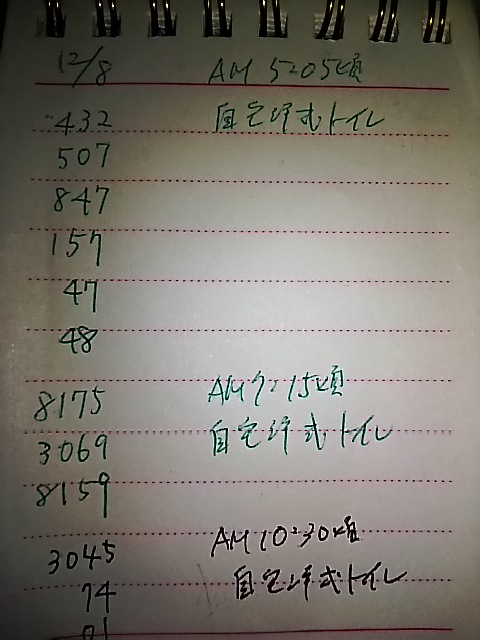 12/8 AM 5:05頃
432 自宅洋式トイレ
507
847
157
47
48
8175 AM7:15頃
3069 自宅洋式トイレ
8159
3045 AM10:30頃
74 自宅洋式トイレ